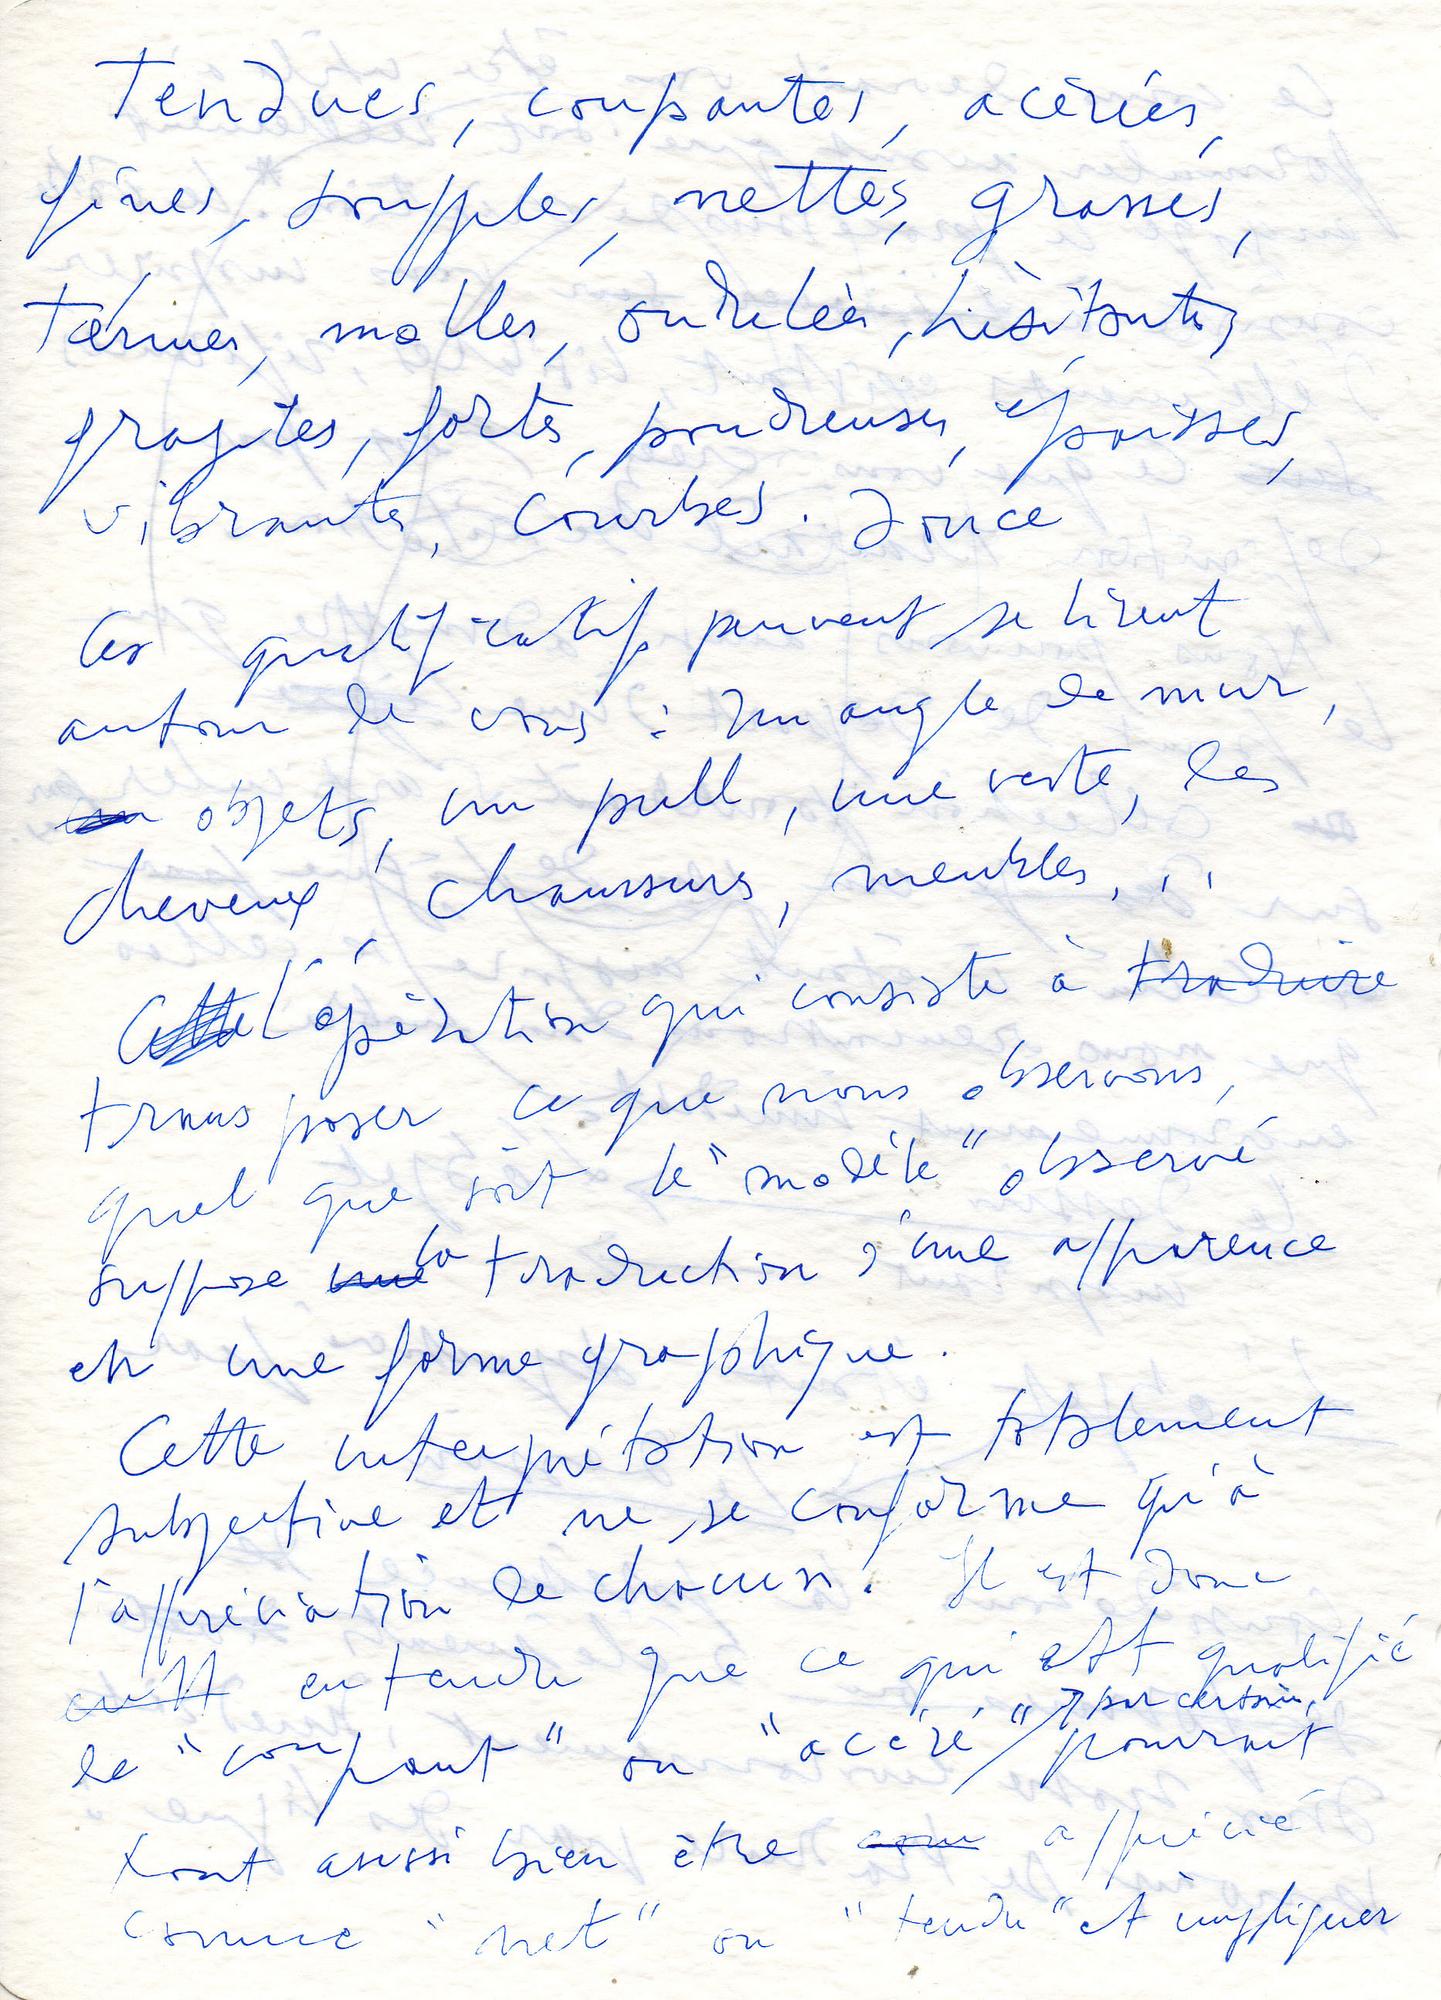 Tendues, coupantes, acérées,
fines, souples, nettes, grasses,
ternes, molles, ondulées, hésitantes,
fragiles, fortes, poudreuses, épaisses,
vibrantes, courbes. douce
Ces qualificatifs peuvent se lirent
autour de vous : un angle de mur,
objets, un pull, une veste, les
cheveux, chaussures, meubles, ...
Cette L'opération qui consiste à traduire
transposer ce que nous observons,
quel que soit le "modèle" observé
suppose une la traduction d'une apparence
en une forme graphique.
Cette interprétation est totalement
subjective et ne se conforme qu'à
l'appréciation de chacun. Il est donc
entendre que ce qui est qualifié
par certains,
de "coupant" ou "acéré" pourrait
tout aussi bien être com apprécié
comme "net" ou "tendu" et impliquer